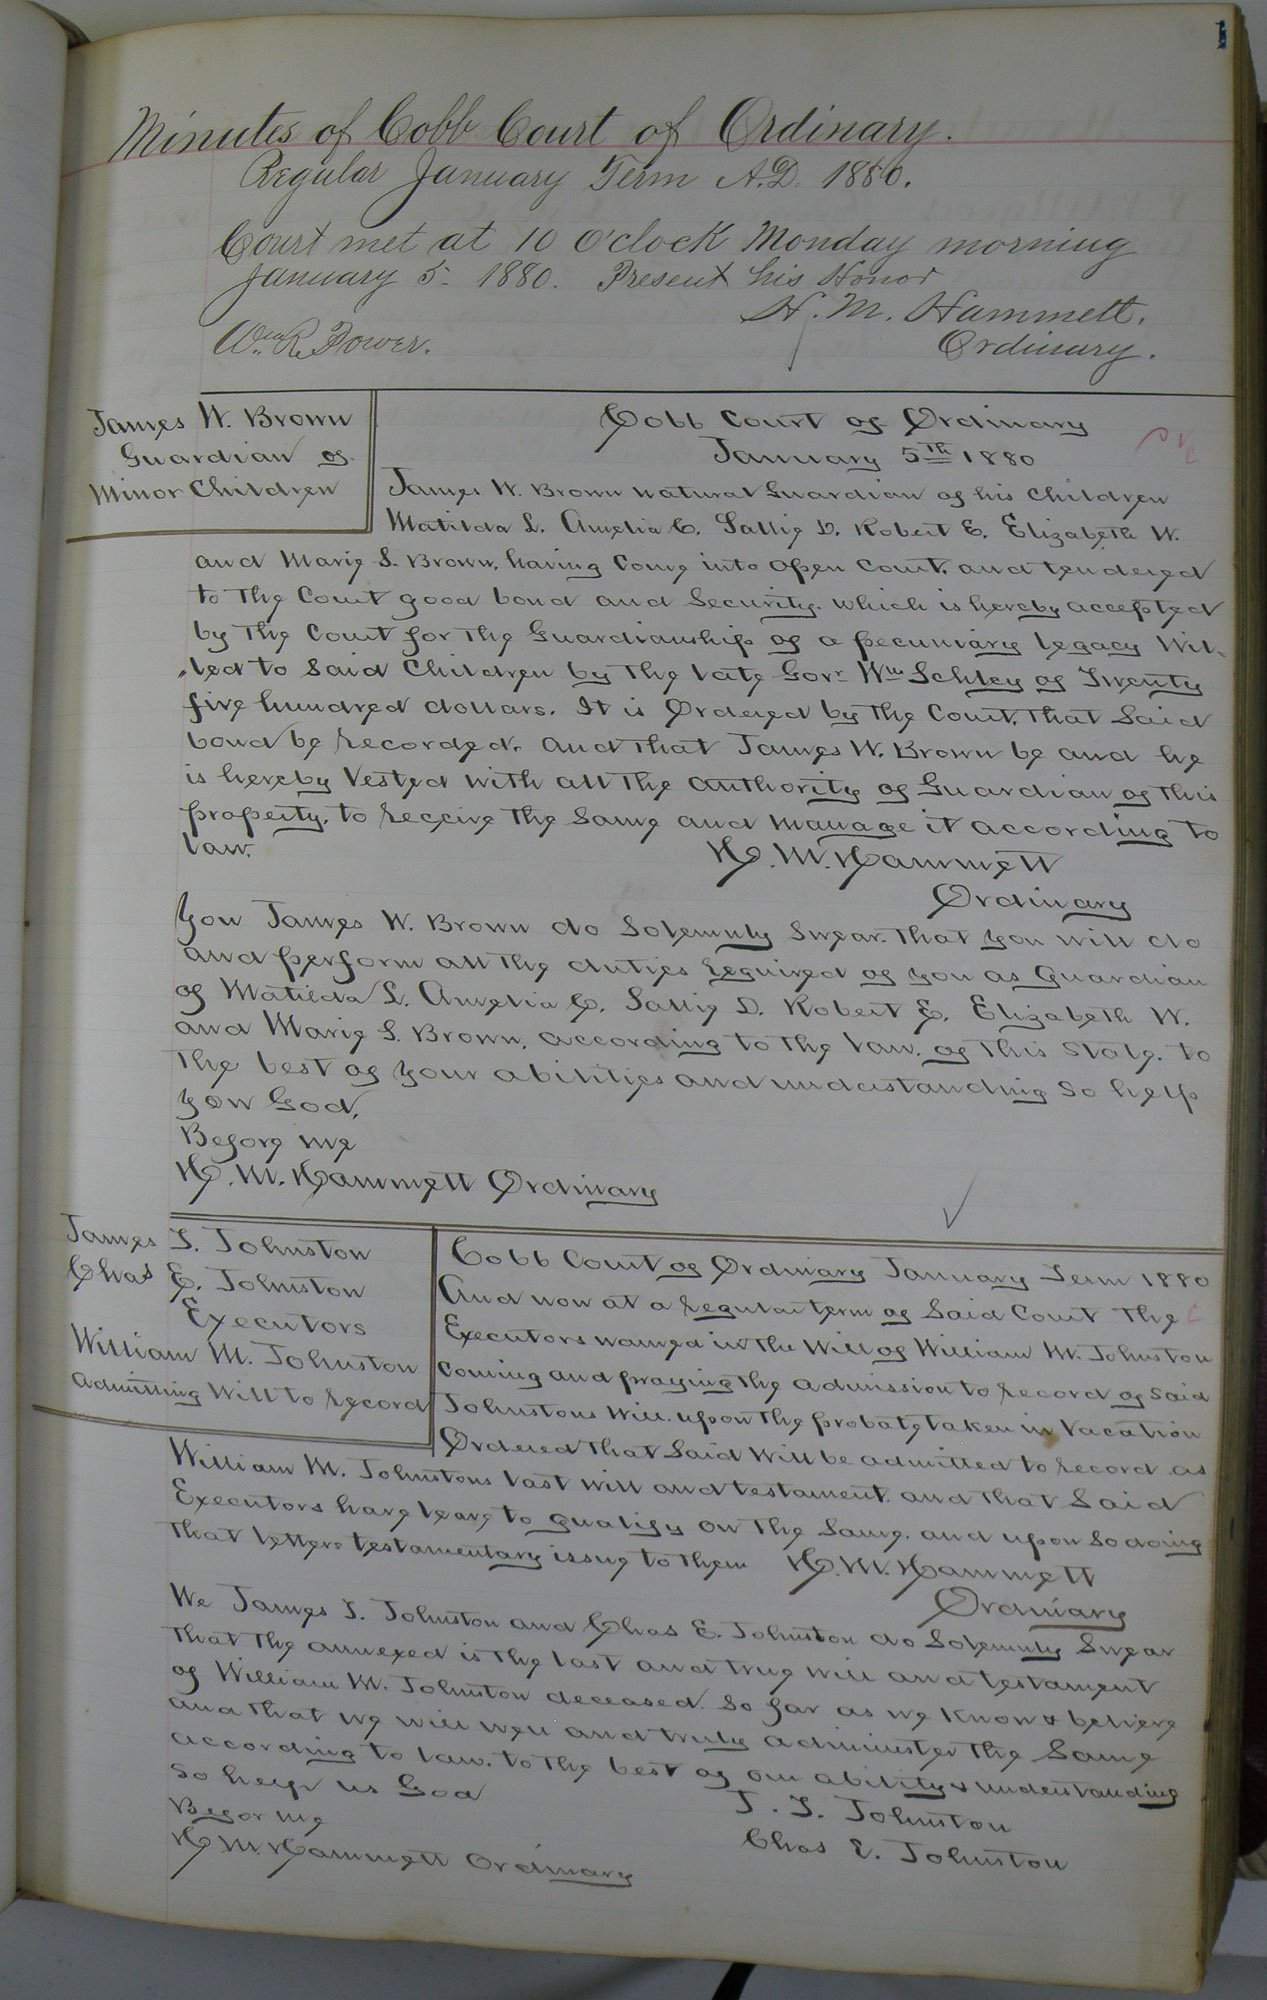 1
Minutes of Cobb Court of Ordinary.
Regular January Term A.D. 1880.
Court met at 10 O'clock Monday morning
January 5- 1880. Present his Honor
H. M. Hammett.
Wm. R. Power.
Ordinary.
James W. Brown
Guardian of
Minor Children
Cobb Court of Ordinary
January 5th 1880
James W. Brown natural Guardian of his children
Matilda L. Amelia C. Sallie D. Robert E. Elizabeth W.
and Marie S. Brown, having come into open court, and tendered
to the Court good bond and Security. which is hereby accepted
by the Court for the Guardianship of a pecuniary legacy Wil-
-led to said Children by the late Govr. Wm Schley of Twenty
five hundred dollars. It is Ordered by the Court, that Said
bond be recorded. And that James W. Brown be and he
is hereby Vested with all the authority of Guardian of this
property, to receive the same and manage it according to
law.
H. M. Hammett
Ordinary
You James W. Brown do Solemnly Swear. that you will do
and perform all the duties required of you as Guardian
of Matilda L. Amelia C. Sallie D. Robert E. Elizabeth W.
and Marie S. Brown, according to the law, of this State, to
the best of your abilities and understanding So help
you God.
Before me
H. M. Hammett Ordinary
James T. Johnston
Chas E. Johnston
Executors
William M. Johnston
Admitting Will to record
Cobb Court of Ordinary January Term 1880
And now at a regular term of Said Court The
Executors named in the Will of William M. Johnston
coming and praying the admission to record of said
Johnstons Will. upon the probate taken in Vacation
Ordered that Said Will be admitted to record as
William M. Johnstons last will and testament. and that Said
Executors have leave to qualify on the Same. and upon so doing
that letters testamentary issue to them
H. M. Hammett
Ordinary
We James T. Johnston and Chas E. Johnston do Solemnly Swear
that the annexed is the last and true will and testament
of William M. Johnston deceased. So far as we know & believe
and that we will well and truly administer the Same
according to law, to the best of our ability & understanding
So help us God
J. T. Johnston
Befor me
Chas E. Johnston
H M. Hammett Ordinary